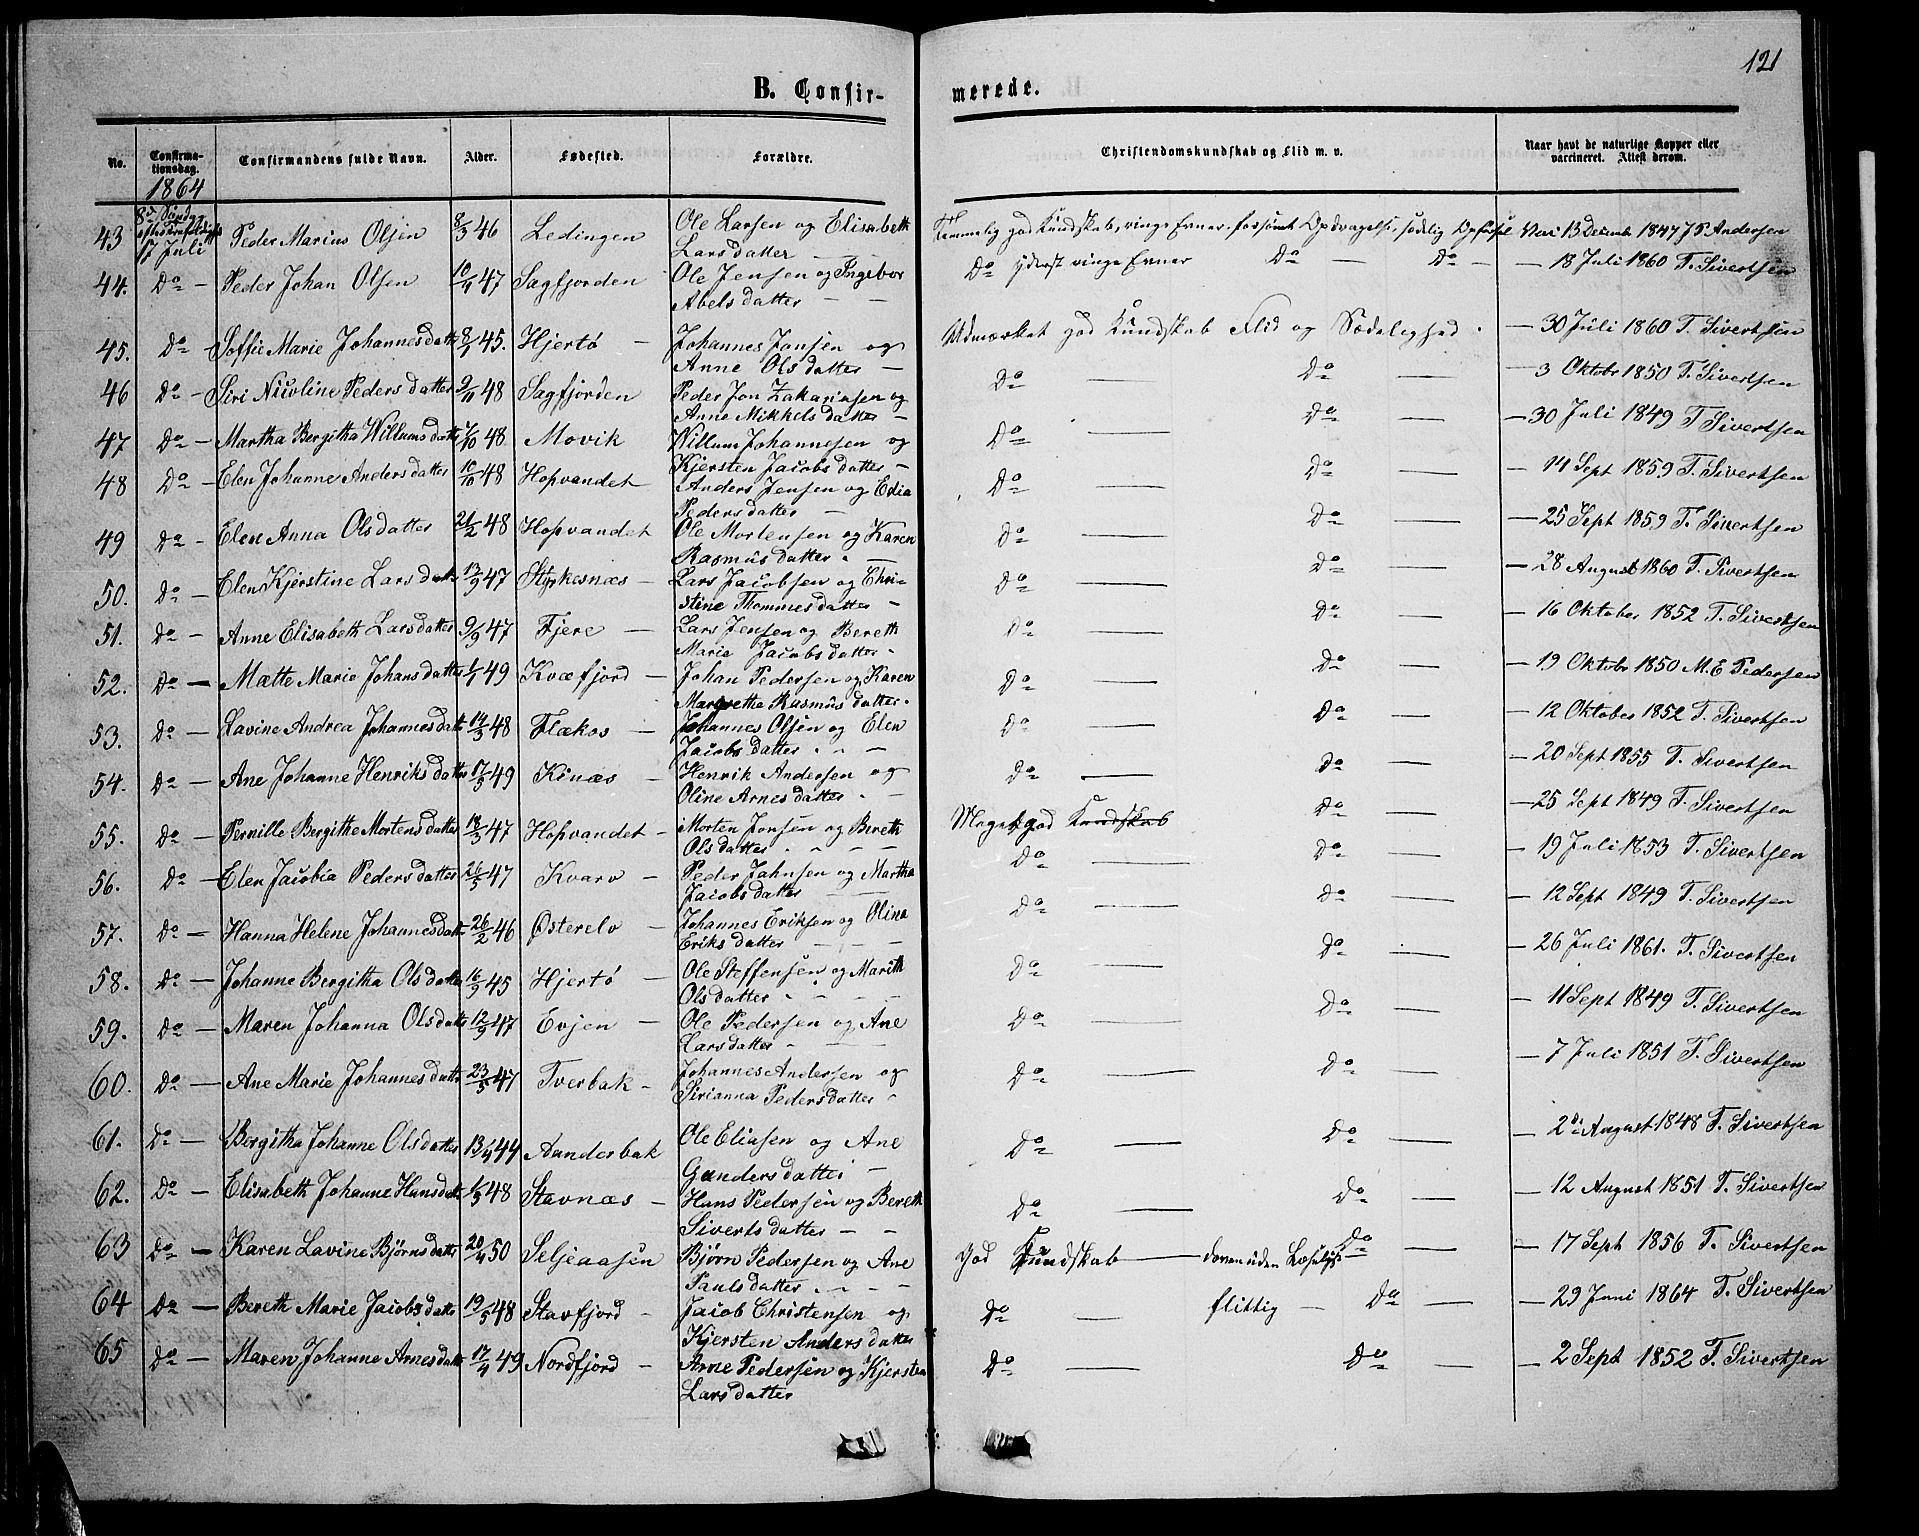 121
B. Confir-
merede.
No.
Confirma-
tionsdag.
Confirmandens fulde Navn.
Alder.
Fødested.
Forældre.
Christendomskundskab og Flid m. v.
Naar havt de naturlige Kopper eller
vaccineret. Attest derom.
1864
8de Søndag
17 Juli
43 Peder Marius Olsen 8/3 46 Ledingen Ole Larsen og Elisabeth Temmelig god Kundskab, ringe Evner, forsømt Opdragelse, sædelig Opførsel Vac 13 Decemb 1847 J P Andersen
Larsdatter
44. Do — Peder Johan Olsen 10/4 47 Sagfjorden Ole Jensen og Ingebor Do yderst ringe Evner Do — Do — — 18 Juli 1860 T. Sivertsen
Abelsdatter — —
45. Do — Soffie Marie Johannesdatt 8/1 45. Hjertø — Johannes Jonsen og Udmærket god Kundskab Flid og Sædelighed. — 30 Juli 1860 T. Sivertsen
Anne Olsdatter —
46 Do — Siri Nicoline Pedersdatter 9/11 48 Sagfjorden Peder Jon Zakariasen og Do — Do — — 3 Oktobr 1850 T. Sivertsen
Anne Mikkelsdatter —
47 Do — Martha Bergitha Willumsdatt 7/10 48 Movik Willum Johannesen og Do — Do — — 30 Juli 1849 T Sivertsen
Kjersten Jacobsdatter —
48 Do — Elen Johanne Andersdatter 10/10 48 Hopvandet Anders Jensen og Edia Do — Do — — 14 Sept 1859 T. Sivertsen
Pedersdatter —
49 Do — Elen Anna Olsdatter 21/2 48 Hopvandet Ole Mortensen og Karen Do — Do — — 25 Sept 1859 T. Sivertsen
Rasmusdatter. —
50. Do — Elen Kjerstine Larsdatt 13/9 47 Styrkesnæs — Lars Jacobsen og Chri- Do — Do — — 28 August 1860 T. Sivertsen
stine Thommesdatter —
51. Do — Anne Elisabeth Larsdatter 9/9 47 Fjere — Lars Jensen og Bereth Do — Do — — 16 Oktober 1852 T. Sivertsen
Marie Jacobsdatter —
52. Do — Mætte Marie Johansdatter 1/1 49 Kvæfjord — Johan Pedersen og Karen Do — Do — — 19 Oktobr 1850 M. E Pedersen
Margrethe Rasmusdatter.
53. Do — Lavine Andrea Johannesdatt 14/3 48 Flækos — Johannes Olsen og Elen Do — Do — — 12 Oktober 1852 T. Sivertsen
Jacobsdatter —
54. Do — Ane Johanne Henriksdatter 17/3 49 Kinæs — Henrik Andersen og Do — Do — — 20 Sept 1855 T. Sivertsen
Oline Arnesdatter —
55. Do — Pernille Bergithe Mortensdatter 18/3 47 Hopvandet — Morten Jonsen og Bereth Meget god Kundskab Do — — 25 Sept 1849 T. Sivertsen
Olsdatter — —
56. Do — Elen Jacobia Pedersdatter 26/5 47 Kvarv — Peder Johnsen og Martha Do — Do — — 19 Juli 1853 T. Sivertsen
Jacobsdatter —
57. Do — Hanna Helene Johannesdatt 26/2 46 Østerelv — Johannes Eriksen og Olina Do — Do — — 12 Sept 1849 T. Sivertsen
Eriksdatter — —
58. Do — Johanne Bergitha Olsdatter 16/9 45 Hjertø — Ole Steffensen og Marith Do — Do — — 26 Juli 1861. T. Sivertsen
Olsdatter — —
59. Do — Maren Johanna Olsdatt 12/9 47 Evjen — Ole Pedersen og Ane Do — Do — — 11 Sept 1849 T. Sivertsen
Larsdatter — —
60. Do — Ane Marie Johannesdatter 23/5 47 Tverbak — Johannes Andersen og Do — Do — — 7 Juli 1851 T. Sivertsen
Sirianna Pedersdatter —
61. Do — Bergitha Johanne Olsdatter 13/4 44 Aanderbak Ole Eliasen og Ane Do — Do — — 2de August 1848 T. Sivertsen
Gundersdatter —
62. Do — Elisabeth Johanne Hansdatt 1/3 48 Stavnæs — Hans Pedersen og Bereth Do — Do — — 12 August 1851 T. Sivertsen
Sivertsdatter — —
63 Do — Karen Lavine Bjørnsdatt 20/4 50 Seljeaasen Bjørn Pedersen og Ane God Kundskab — Do — — 17 Sept 1856 T. Sivertsen
Paulsdatter — —
64 Do — Bereth Marie Jacobsdatt 19/5 48 Stavfjord — Jacob Christensen og Do — flittig — Do — — 29 Juni 1864 T. Sivertsen
Kjersten Andersdatter
65 Do — Maren Johanne Arnesdatt 17/4 49 Nordfjord — Arne Pedersen og Kjersten Do — Do — — 2 Sept 1852 T. Sivertsen
Larsdatter